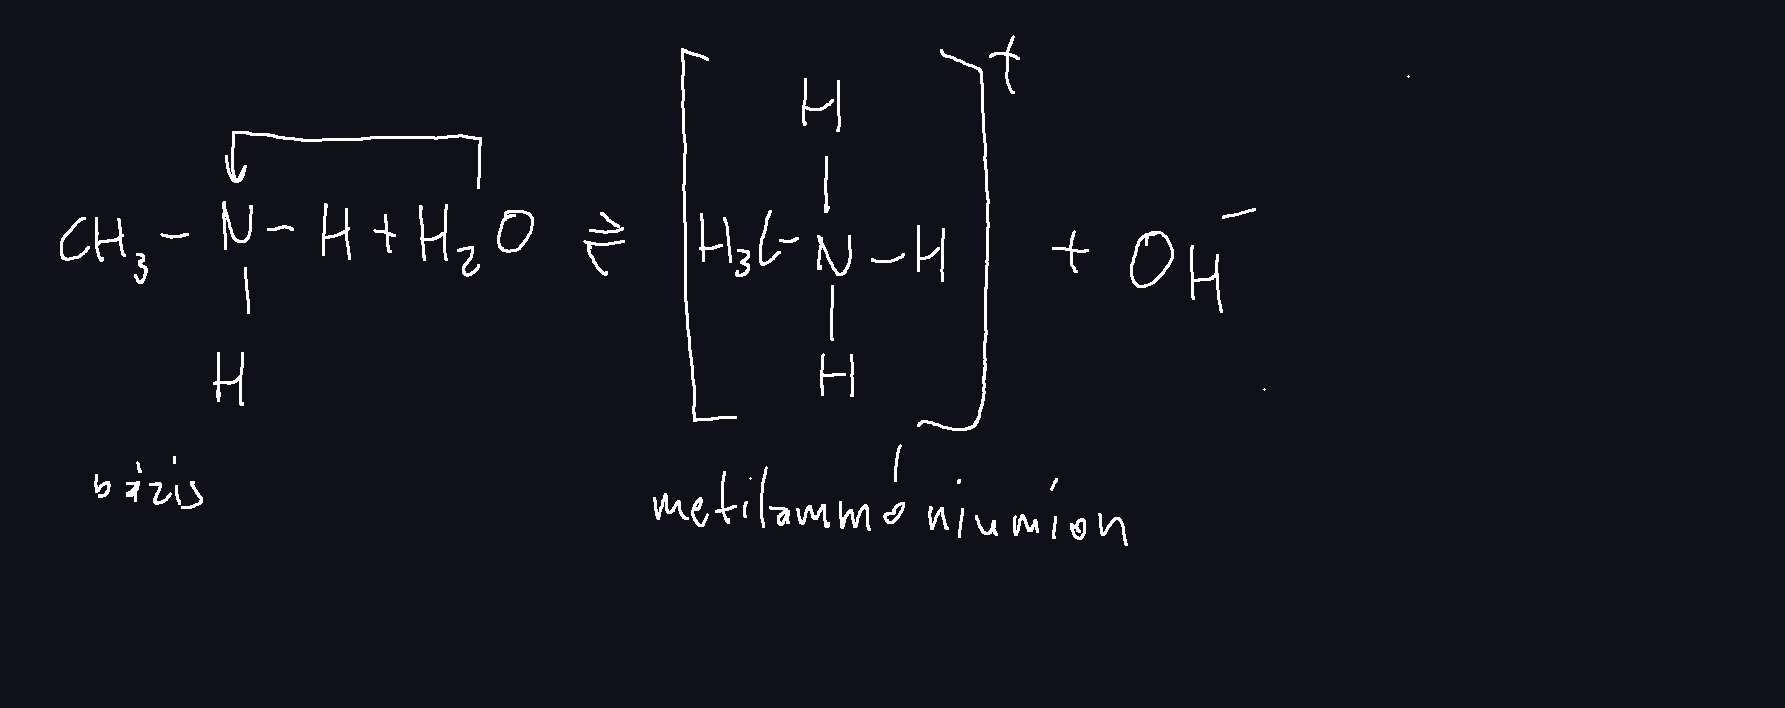 H
CH₃ - N - H + H₂O ⇌ [H₃C - N - H]⁺ + OH⁻
H
H
bázis
metilammóniumion